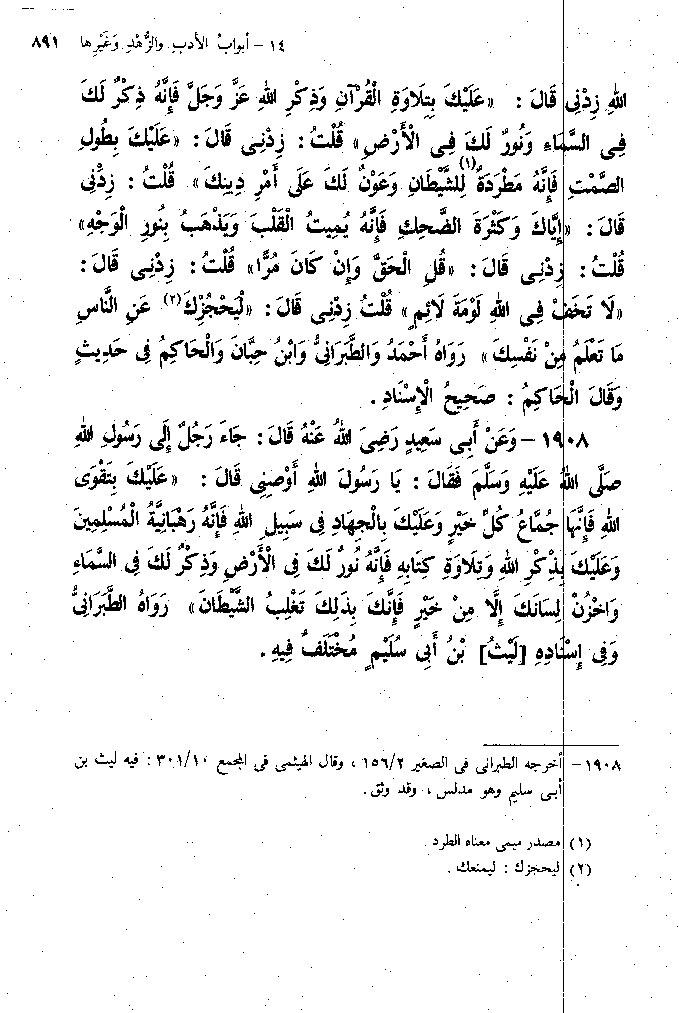 ١٤ - أبوابُ الأدبِ والزُّهْدِ وَغَيْرِها ٨٩١
اللهِ زِدْنِى قَالَ : «عَلَيْكَ بِتِلَاوَةِ الْقُرْآنِ وَذِكْرِ اللهِ عَزَّ وَجَلَّ فَإِنَّهُ ذِكْرٌ لَكَ
فِى السَّمَاءِ وَنُورٌ لَكَ فِى الْأَرْضِ» قُلْتُ : زِدْنِى قَالَ : «عَلَيْكَ بِطُولِ
الصَّمْتِ فَإِنَّهُ مَطْرَدَةٌ(١) لِلشَّيْطَانِ وَعَوْنٌ لَكَ عَلَى أَمْرِ دِينِكَ» قُلْتُ : زِدْنِى
قَالَ : «إِيَّاكَ وَكَثْرَةَ الضَّحِكِ فَإِنَّهُ يُمِيتُ الْقَلْبَ وَيَذْهَبُ بِنُورِ الْوَجْهِ»
قُلْتُ : زِدْنِى قَالَ : «قُلِ الْحَقَّ وَإِنْ كَانَ مُرًّا» قُلْتُ : زِدْنِى قَالَ :
«لَا تَخَفْ فِى اللهِ لَوْمَةَ لَائِمٍ» قُلْتُ زِدْنِى قَالَ : «لِيَحْجُزْكَ(٢) عَنِ النَّاسِ
مَا تَعْلَمُ مِنْ نَفْسِكَ» رَوَاهُ أَحْمَدُ وَالطَّبَرَانِىُّ وَابْنُ حِبَّانَ وَالْحَاكِمُ فِى حَدِيثٍ
وَقَالَ الْحَاكِمُ : صَحِيحُ الْإِسْنَادِ .
١٩٠٨ - وَعَنْ أَبِى سَعِيدٍ رَضِىَ اللهُ عَنْهُ قَالَ : جَاءَ رَجُلٌ إِلَى رَسُولِ اللهِ
صَلَّى اللهُ عَلَيْهِ وَسَلَّمَ فَقَالَ : يَا رَسُولَ اللهِ أَوْصِنِى قَالَ : «عَلَيْكَ بِتَقْوَى
اللهِ فَإِنَّهَا جُمَّاعُ كُلِّ خَيْرٍ وَعَلَيْكَ بِالْجِهَادِ فِى سَبِيلِ اللهِ فَإِنَّهُ رَهْبَانِيَّةُ الْمُسْلِمِينَ
وَعَلَيْكَ بِذِكْرِ اللهِ وَتِلَاوَةِ كِتَابِهِ فَإِنَّهُ نُورٌ لَكَ فِى الْأَرْضِ وَذِكْرٌ لَكَ فِى السَّمَاءِ
وَاخْزُنْ لِسَانَكَ إِلَّا مِنْ خَيْرٍ فَإِنَّكَ بِذَلِكَ تَغْلِبُ الشَّيْطَانَ» رَوَاهُ الطَّبَرَانِىُّ
وَفِى إِسْنَادِهِ [لَيْثُ] بْنُ أَبِى سُلَيْمٍ مُخْتَلَفٌ فِيهِ .
١٩٠٨ - أخرجه الطبرانى فى الصغير ١٥٦/٢ ، وقال الهيثمى فى المجمع ٣٠١/١٠ : فيه ليث بن
أبى سليم وهو مدلس ، وقد وثق .
(١) مصدر ميمى معناه الطرد .
(٢) ليحجزك : ليمنعك .